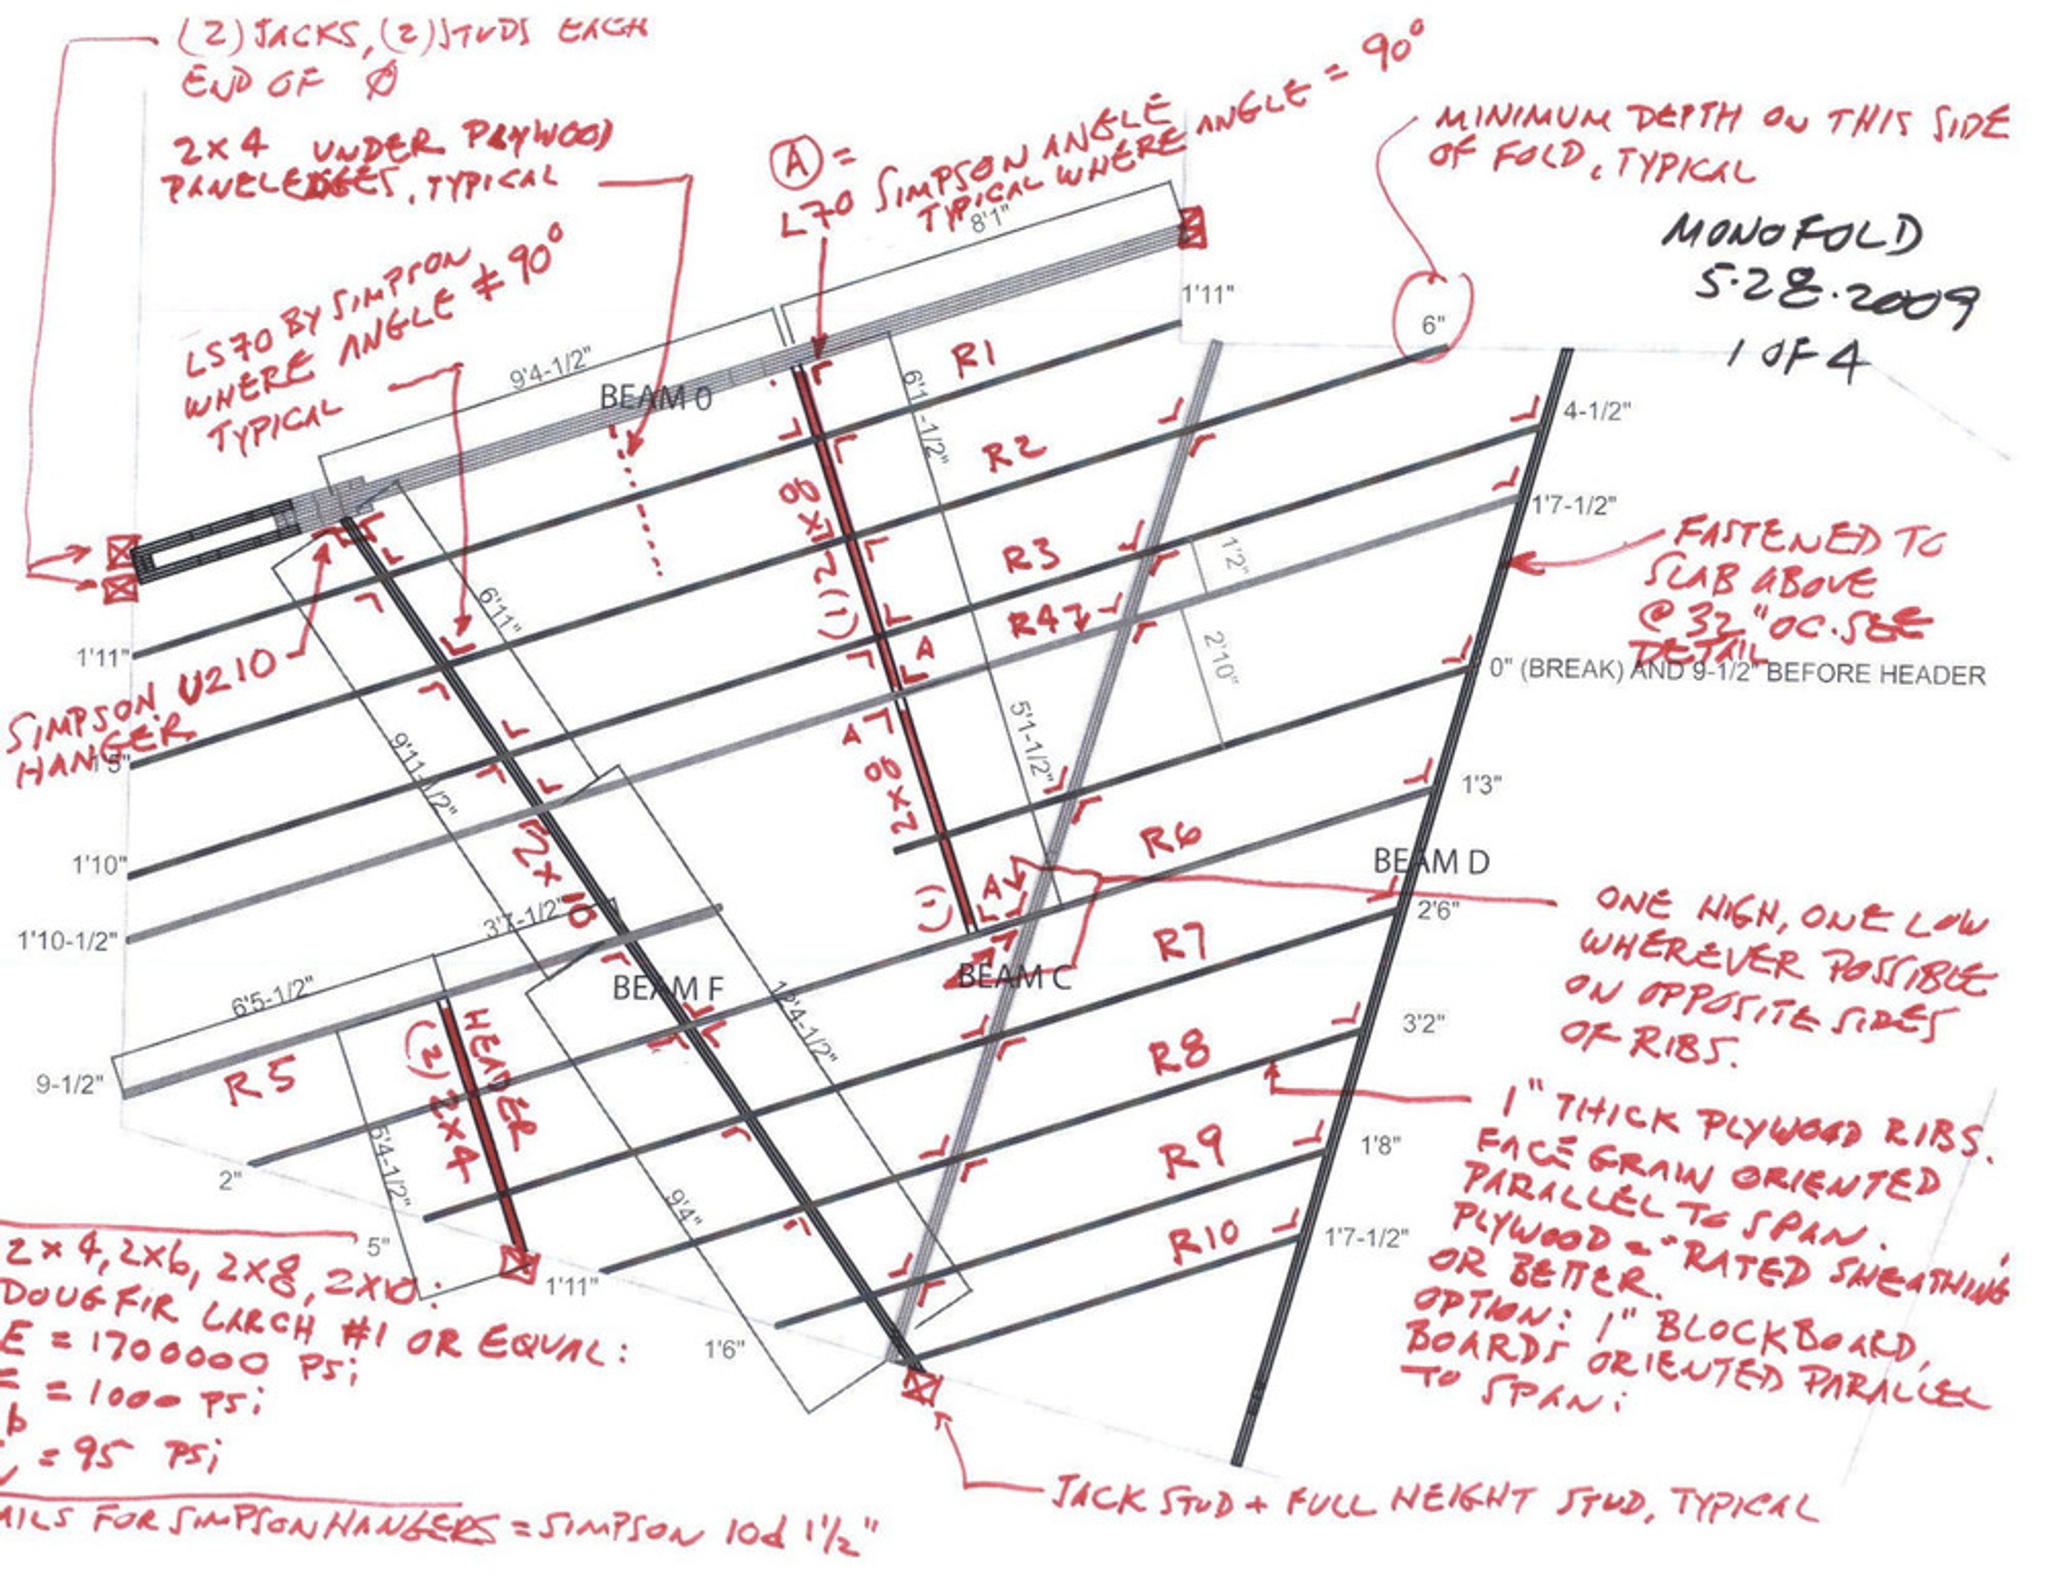 (2) JACKS, (2) STUDS EACH
END OF Ø
2x4 UNDER PLYWOOD
PANEL EDGES, TYPICAL
LS70 BY SIMPSON
WHERE ANGLE ≠ 90°
TYPICAL
(A) =
L70 SIMPSON ANGLE
TYPICAL WHERE ANGLE = 90°
MINIMUM DEPTH ON THIS SIDE
OF FOLD, TYPICAL
MONOFOLD
5·28·2009
1 OF 4
8'1"
1'11"
6"
9'4-1/2"
BEAM 0
R1
6'11-1/2"
R2
4-1/2"
1'7-1/2"
2x12 (1)
R3
R4
1'2"
2'10"
6'11"
FASTENED TO
SLAB ABOVE
@ 32" OC. SEE
DETAIL
0" (BREAK) AND 9-1/2" BEFORE HEADER
SIMPSON U210
HANGER
1'11"
1'5"
9'11-1/2"
A
A
5'1-1/2"
2x8
1'3"
1'10"
1'10-1/2"
2x10
R6
(1)
A
BEAM D
2'6"
ONE HIGH, ONE LOW
WHEREVER POSSIBLE
ON OPPOSITE SIDES
OF RIBS.
3'7-1/2"
6'5-1/2"
BEAM F
BEAM C
R7
12'4-1/2"
3'2"
9-1/2"
R5
HEADER
(2) 2x4
R8
1" THICK PLYWOOD RIBS.
FACE GRAIN ORIENTED
PARALLEL TO SPAN.
PLYWOOD = "RATED SHEATHING"
OR BETTER.
OPTION: 1" BLOCKBOARD,
BOARDS ORIENTED PARALLEL
TO SPAN:
5'4-1/2"
2"
R9
1'8"
9'4"
R10
1'7-1/2"
5"
1'11"
1'6"
2x4, 2x6, 2x8, 2x10:
DOUG FIR LARCH #1 OR EQUAL:
E = 1700000 PSi
= 1000 PSi
b
= 95 PSi
AILS FOR SIMPSON HANGERS = SIMPSON 10d 1½"
JACK STUD + FULL HEIGHT STUD, TYPICAL